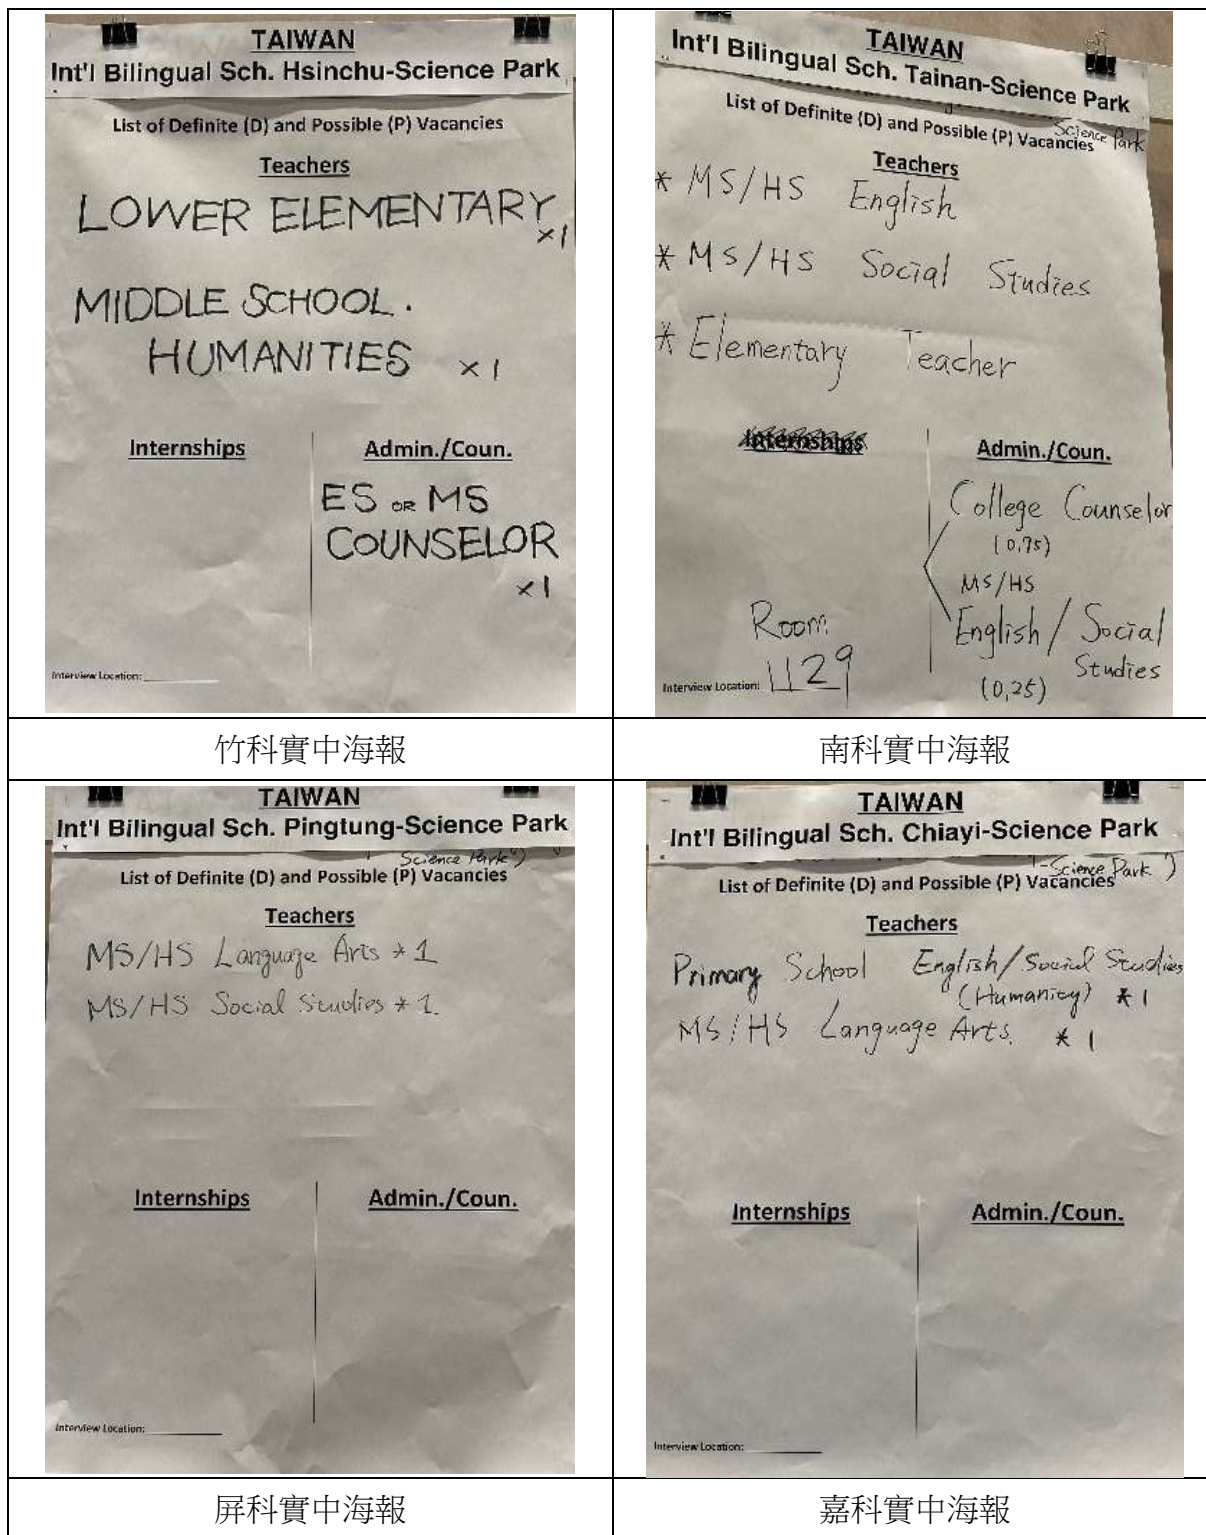 TAIWAN
Int'l Bilingual Sch. Hsinchu-Science Park
List of Definite (D) and Possible (P) Vacancies
Teachers
LOWER ELEMENTARY
×1
MIDDLE SCHOOL.
HUMANITIES ×1
Internships
Admin./Coun.
ES OR MS
COUNSELOR
×1
Interview Location:
竹科實中海報
TAIWAN
Int'l Bilingual Sch. Tainan-Science Park
Science Park
List of Definite (D) and Possible (P) Vacancies
Teachers
* MS/HS English
* MS/HS Social Studies
* Elementary Teacher
Internships
Admin./Coun.
College Counselor
(0.75)
MS/HS
English / Social
Studies
(0.25)
Room
Interview Location: 1129
南科實中海報
TAIWAN
Int'l Bilingual Sch. Pingtung-Science Park
Science Park")
List of Definite (D) and Possible (P) Vacancies
Teachers
MS/HS Language Arts * 1
MS/HS Social Studies * 1.
Internships
Admin./Coun.
Interview Location:
屏科實中海報
TAIWAN
Int'l Bilingual Sch. Chiayi-Science Park
-Science Park")
List of Definite (D) and Possible (P) Vacancies
Teachers
Primary School English/Social Studies
(Humanity) * 1
MS/HS Language Arts. * 1
Internships
Admin./Coun.
Interview Location:
嘉科實中海報